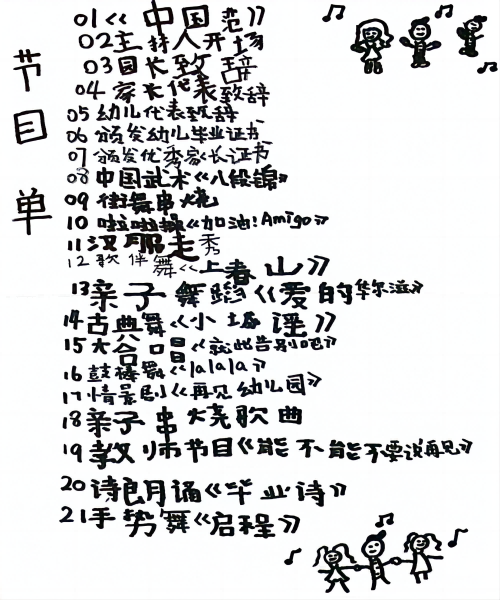 节目单
01《中国范》
02主持人开场
03园长致辞
04家长代表致辞
05幼儿代表致辞
06颁发幼儿毕业证书
07颁发优秀家长证书
08中国武术《八段锦》
09街舞串烧
10啦啦操《加油!Amigo》
11汉服走秀
12歌伴舞《上春山》
13亲子舞蹈《爱的华尔滋》
14古典舞《小城谣》
15大合唱《就此告别吧》
16鼓棒舞《lalala》
17情景剧《再见幼儿园》
18亲子串烧歌曲
19教师节目《能不能不要说再见》
20诗朗诵《毕业诗》
21手势舞《启程》